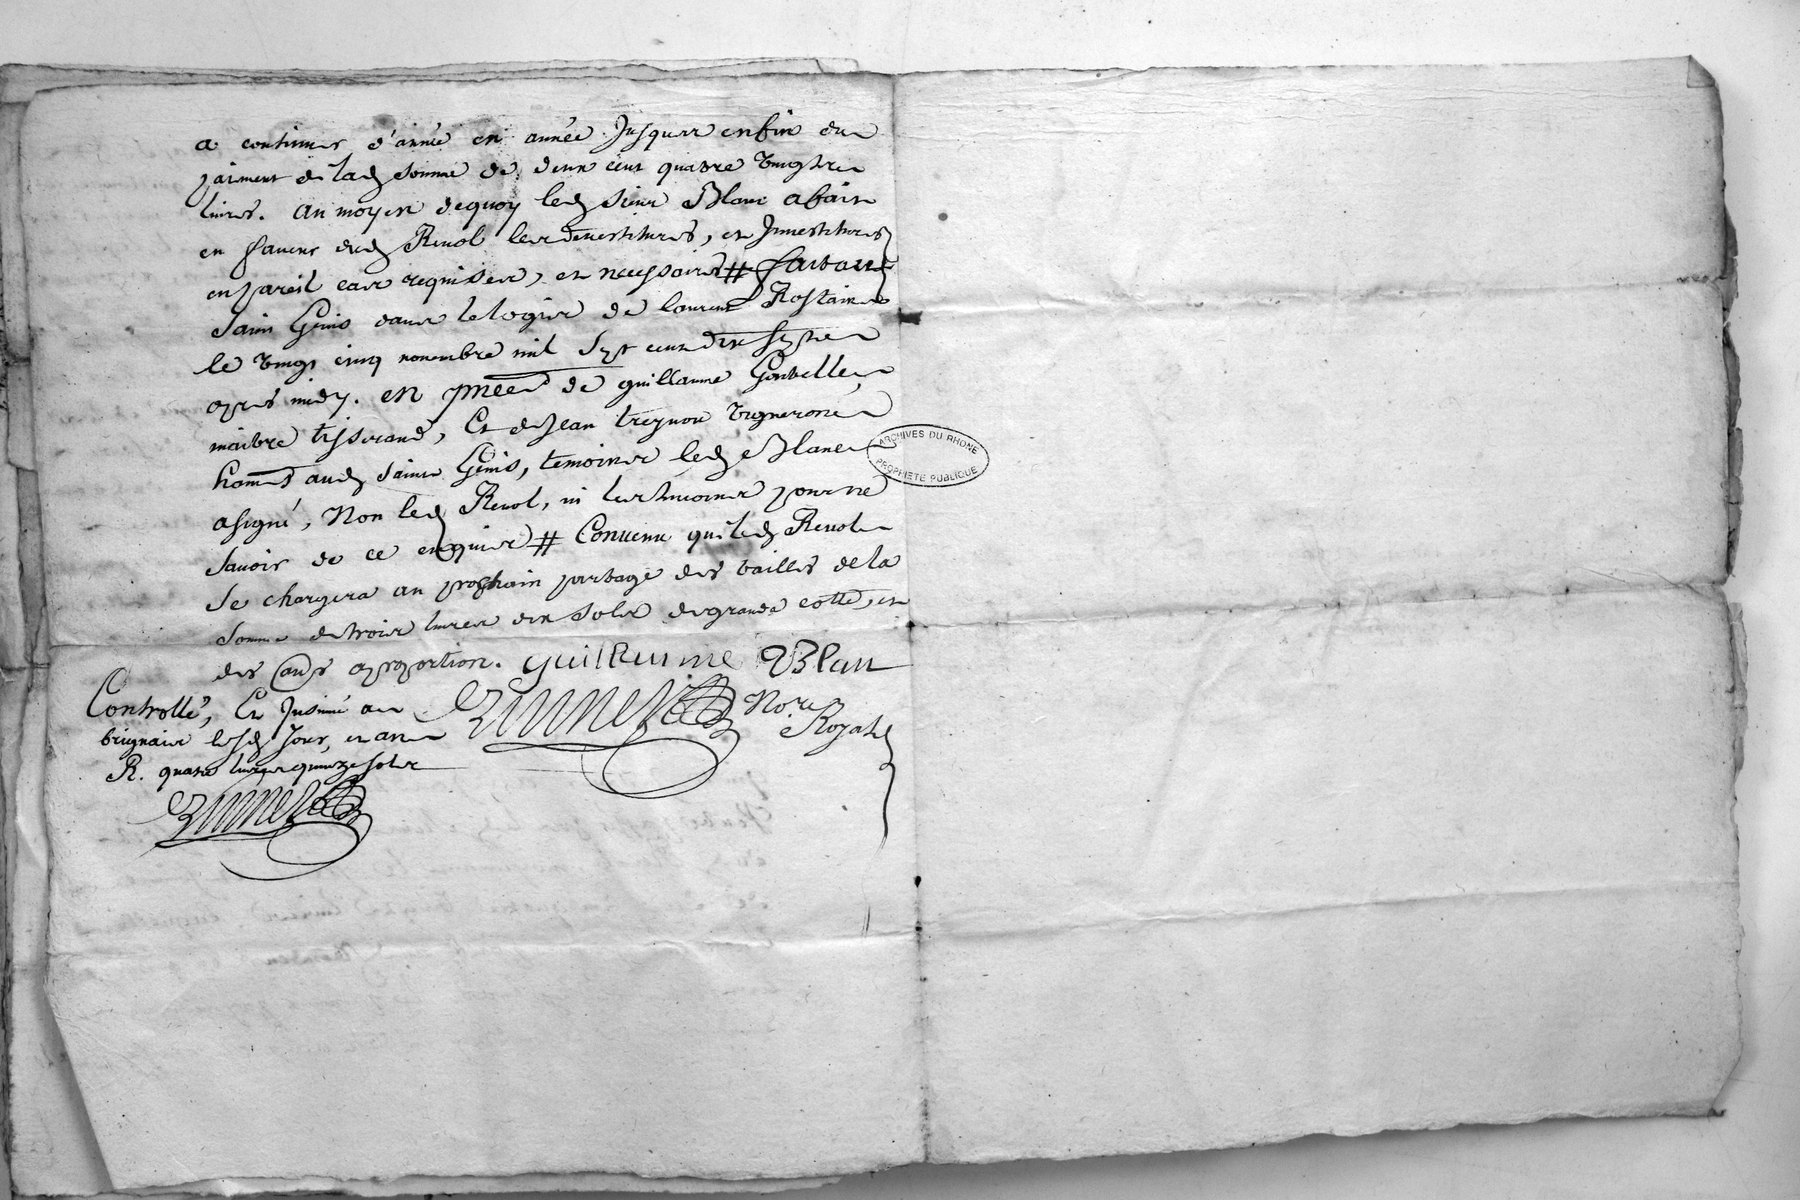 a continuer d'année en année Jusques enfin du
paiment de lad somme de deux cent quatre vingts
livres. au moyen dequoy led sieur Blanc a fait
en faveur dud Revol les devestitures, et Investitures
en pareil cas requises, et necessaires # fait au d
saint Genis dans le logis de laurent Rostain
le vingt cinq novembre mil sept cent dix sept
apres midy. en pnce de guillaume
maitre tisserand, Et de Jean treynon vigneron
hants aud saint Genis, temoins led sr Blanc
a signé, Non led Revol, ni les temoins pour ne
savoir de ce enquis # Convenu qui led Revol
se chargera au prochain partage des tailles de la
somme de trois livres dix sols de grande cotte, et
des aproportion. guillaume Blan
Controllé, Et Insinué a Nore
brignais lesd Jour, et an Royal
R. quatre livres quinze sols
ARCHIVES DU RHONE
PROPRIETE PUBLIQUE